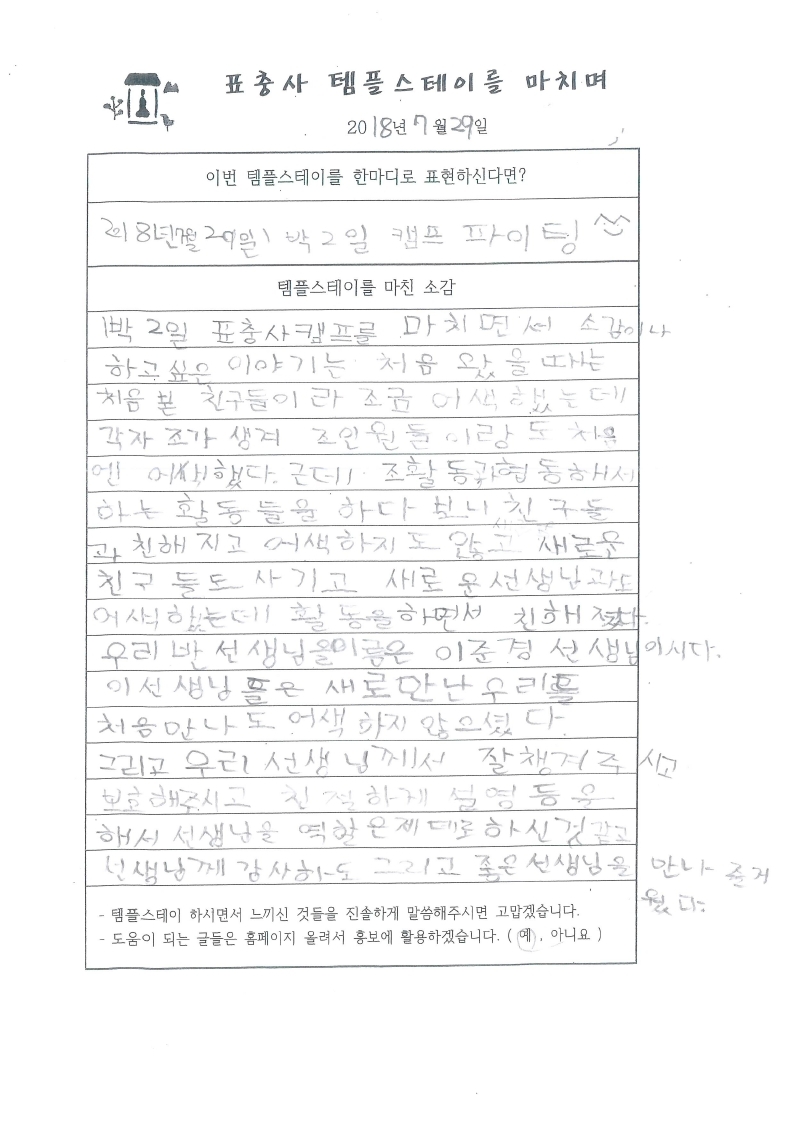 표충사 템플스테이를 마치며
2018년 7월 29일
이번 템플스테이를 한마디로 표현하신다면?
18년7월29일 1박2일 캠프 파이팅
템플스테이를 마친 소감
1박2일 표충사캠프를 마치면서 소감이나
하고싶은 이야기는 처음 왔을때는
처음 본 친구들이라 조금 어색했는데
각자 조가 생겨 조인원들이랑도 처음
엔 어색했다. 근데 조활동과협동해서
하는 활동들을 하다 보니 친구들
과 친해지고 어색하지도 않고 새로운
친구들도 사기고 새로운선생님과도
어색했는데 활동을하면서 친해졌다.
우리반선생님을이름은 이준경 선생님이시다.
이선생님들은 새로만난우리를
처음만나도 어색하지않으셨다
그리고 우리 선생님께서 잘챙겨주시고
보호해주시고 친절하게 설명등을
해서 선생님을 역할은제대로하신것같고
선생님께 감사하도 그리고 좋은선생님을 만나 즐거
웠다.
- 템플스테이 하시면서 느끼신 것들을 진솔하게 말씀해주시면 고맙겠습니다.
- 도움이 되는 글들은 홈페이지 올려서 홍보에 활용하겠습니다. ( 예 , 아니요 )